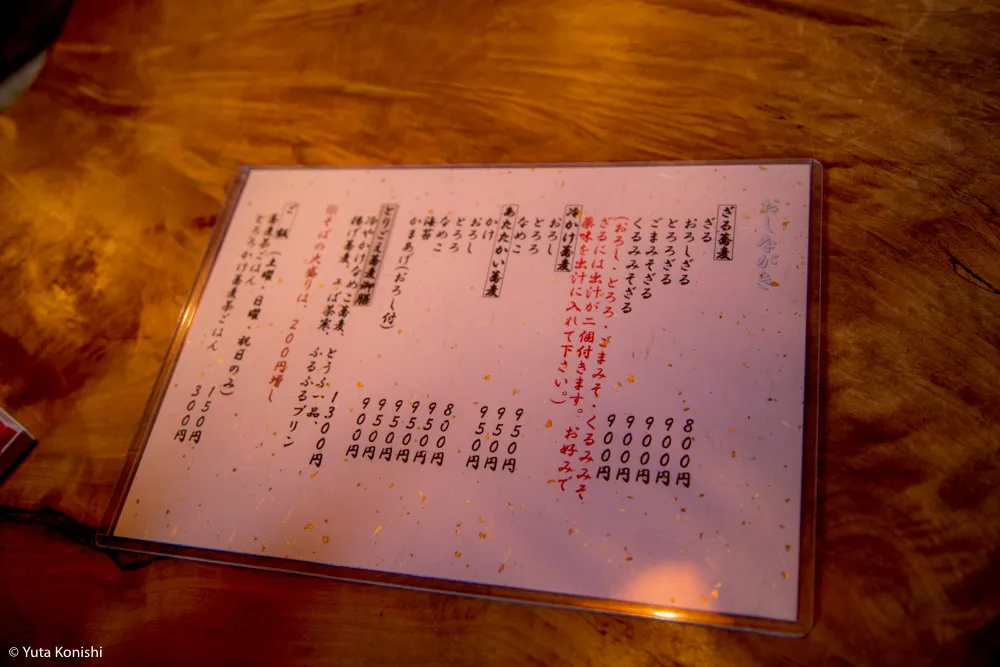 おしながき
ざる蕎麦
ざる 800円
おろしざる 900円
とろろざる 900円
ごまみそざる 900円
くるみみそざる 900円
(おろし・とろろ・ごまみそ・くるみみそ
ざるには出汁が二個付きます。お好みで
薬味を出汁に入れて下さい。)
冷かけ蕎麦
おろし 950円
とろろ 950円
なめこ 950円
あたたかい蕎麦
かけ 800円
おろし 950円
とろろ 950円
なめこ 950円
海苔 950円
かまあげ(おろし付) 950円
とりごえ蕎麦御膳
冷やかけなめこ蕎麦、とうふ一品、 1300円
揚げ蕎麦、そば茶果、ふるふるプリン
※そばの大盛りは、200円増し
ご飯
蕎麦茶ごはん(土曜・日曜、祝日のみ) 150円
とろろかけ蕎麦茶ごはん 300円
© Yuta Konishi